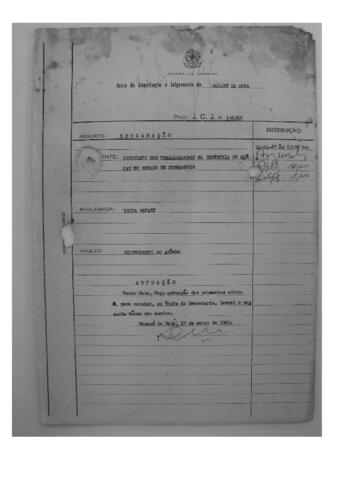 JUSTIÇA DO TRABALHO
Junta de Conciliação e Julgamento de NAZARÉ DA MATA
PROC. J. C. J. n.
ASSUNTO: RECLAMAÇÃO
DISTRIBUIÇÃO
ANTE: SINDICATO DOS TRABALHADORES NA INDÚSTRIA DO AÇÚ-
CAR NO ESTADO DE PERNAMBUCO
RECLAMADA: USINA
OBJETO: CUMPRIMENTO DO ACÔRDO
AUTUAÇÃO
Nesta data, faço autuação dos presentes autos.
E, para constar, eu Chefe de Secretaria, lavrei o pre
sente têrmo que assino.
Nazaré da Mata, 17 de março de 1967.